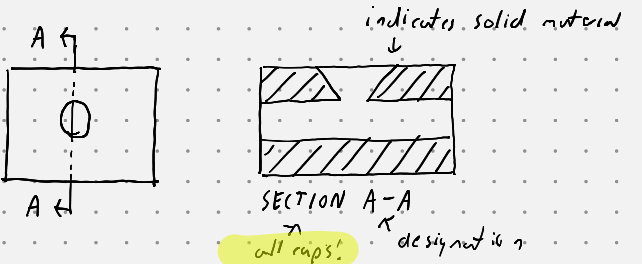 indicates solid material
A
A
SECTION A-A
all caps!
designation